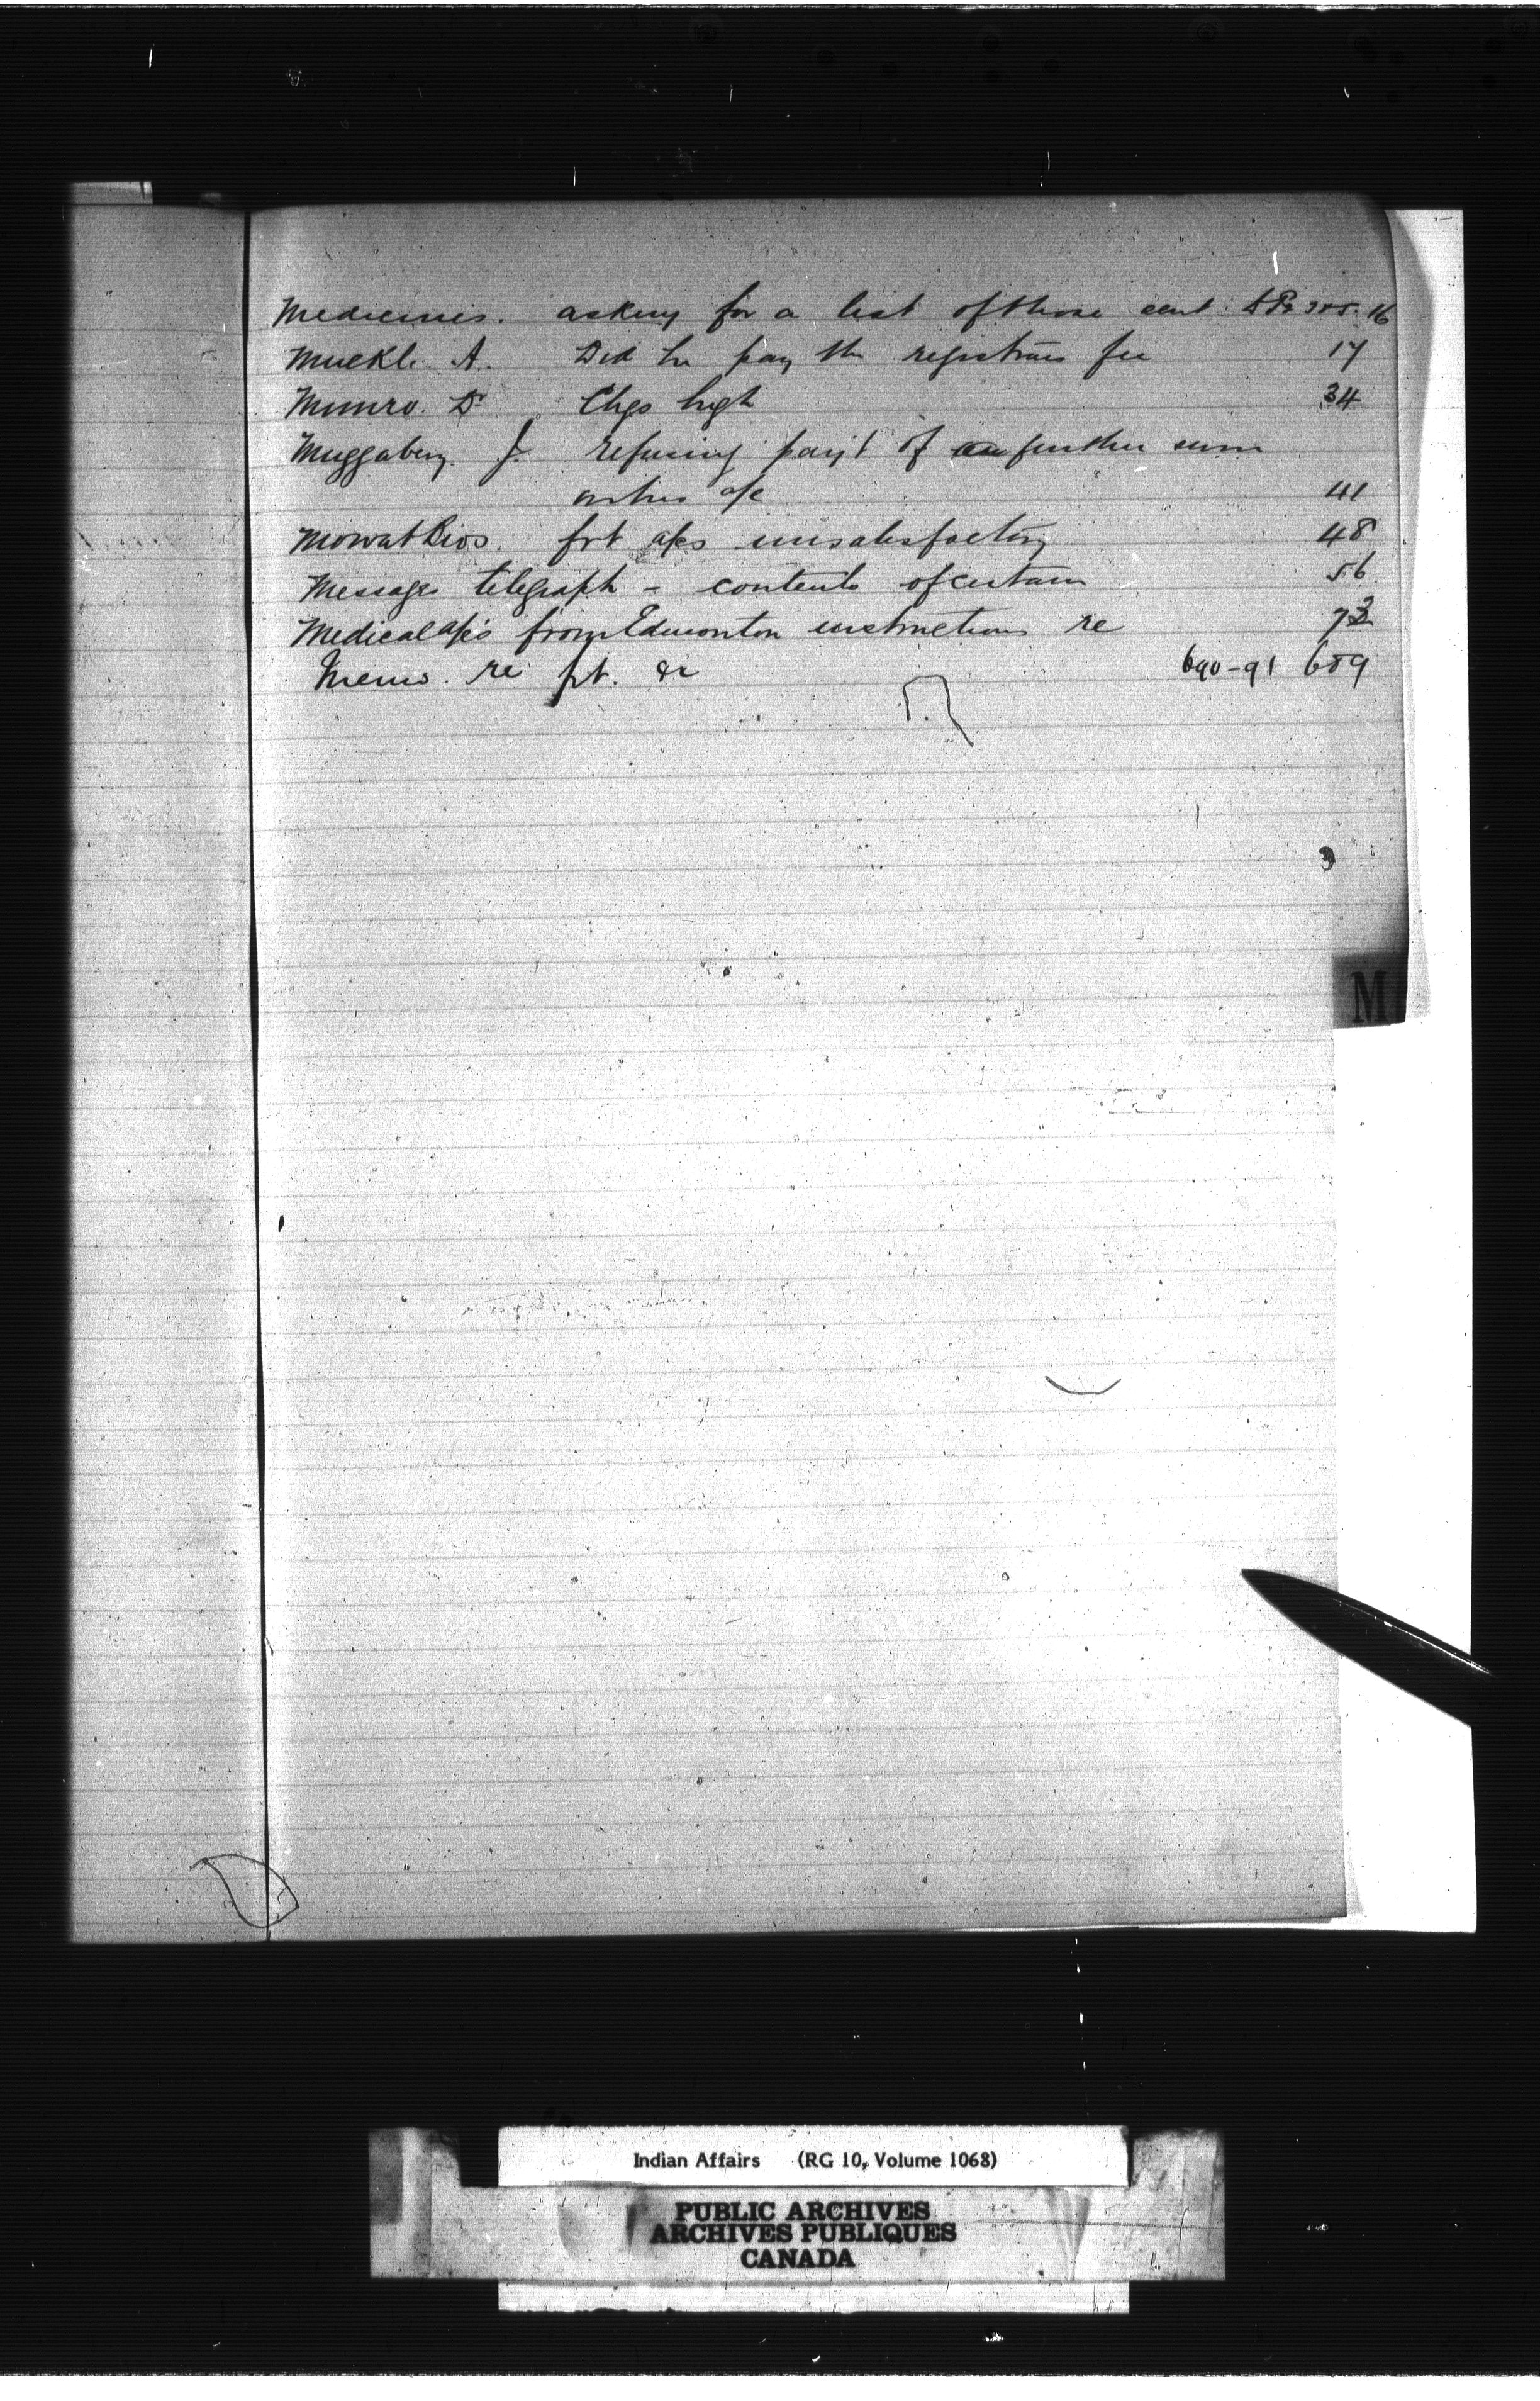 Medicines. asking for a list of those sent. 16
Muckle A. Did he pay the registration fee 17
Munro. Dr Chgs high 34
Muggaberg J. refusing payt of further sum
on his a/c 41
Mowat Bros. frt a/cs unsatisfactory 48
Messages telegraph - contents of certain 56
Medical a/cs from Edmonton instructions re 73
Memo. re frt. &c 690-91 689
M
Indian Affairs (RG 10, Volume 1068)
PUBLIC ARCHIVES
ARCHIVES PUBLIQUES
CANADA